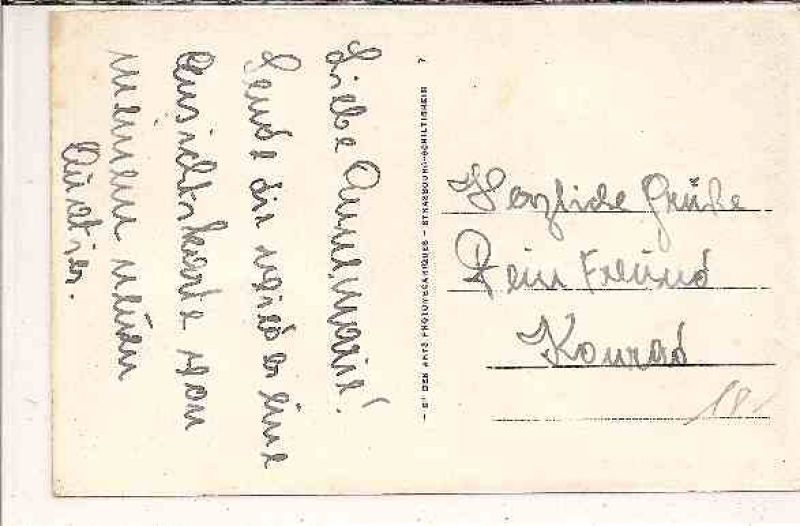 Liebe Annemarie!
Sende dir wieder eine
Ansichtskarte von
meinem neuen
Quatier.
— Sté DES ARTS PHOTOMÉCANIQUES — STRASBOURG-SCHILTIGHEIM 7
Herzliche Grüße
Dein Freund
Konrad
18